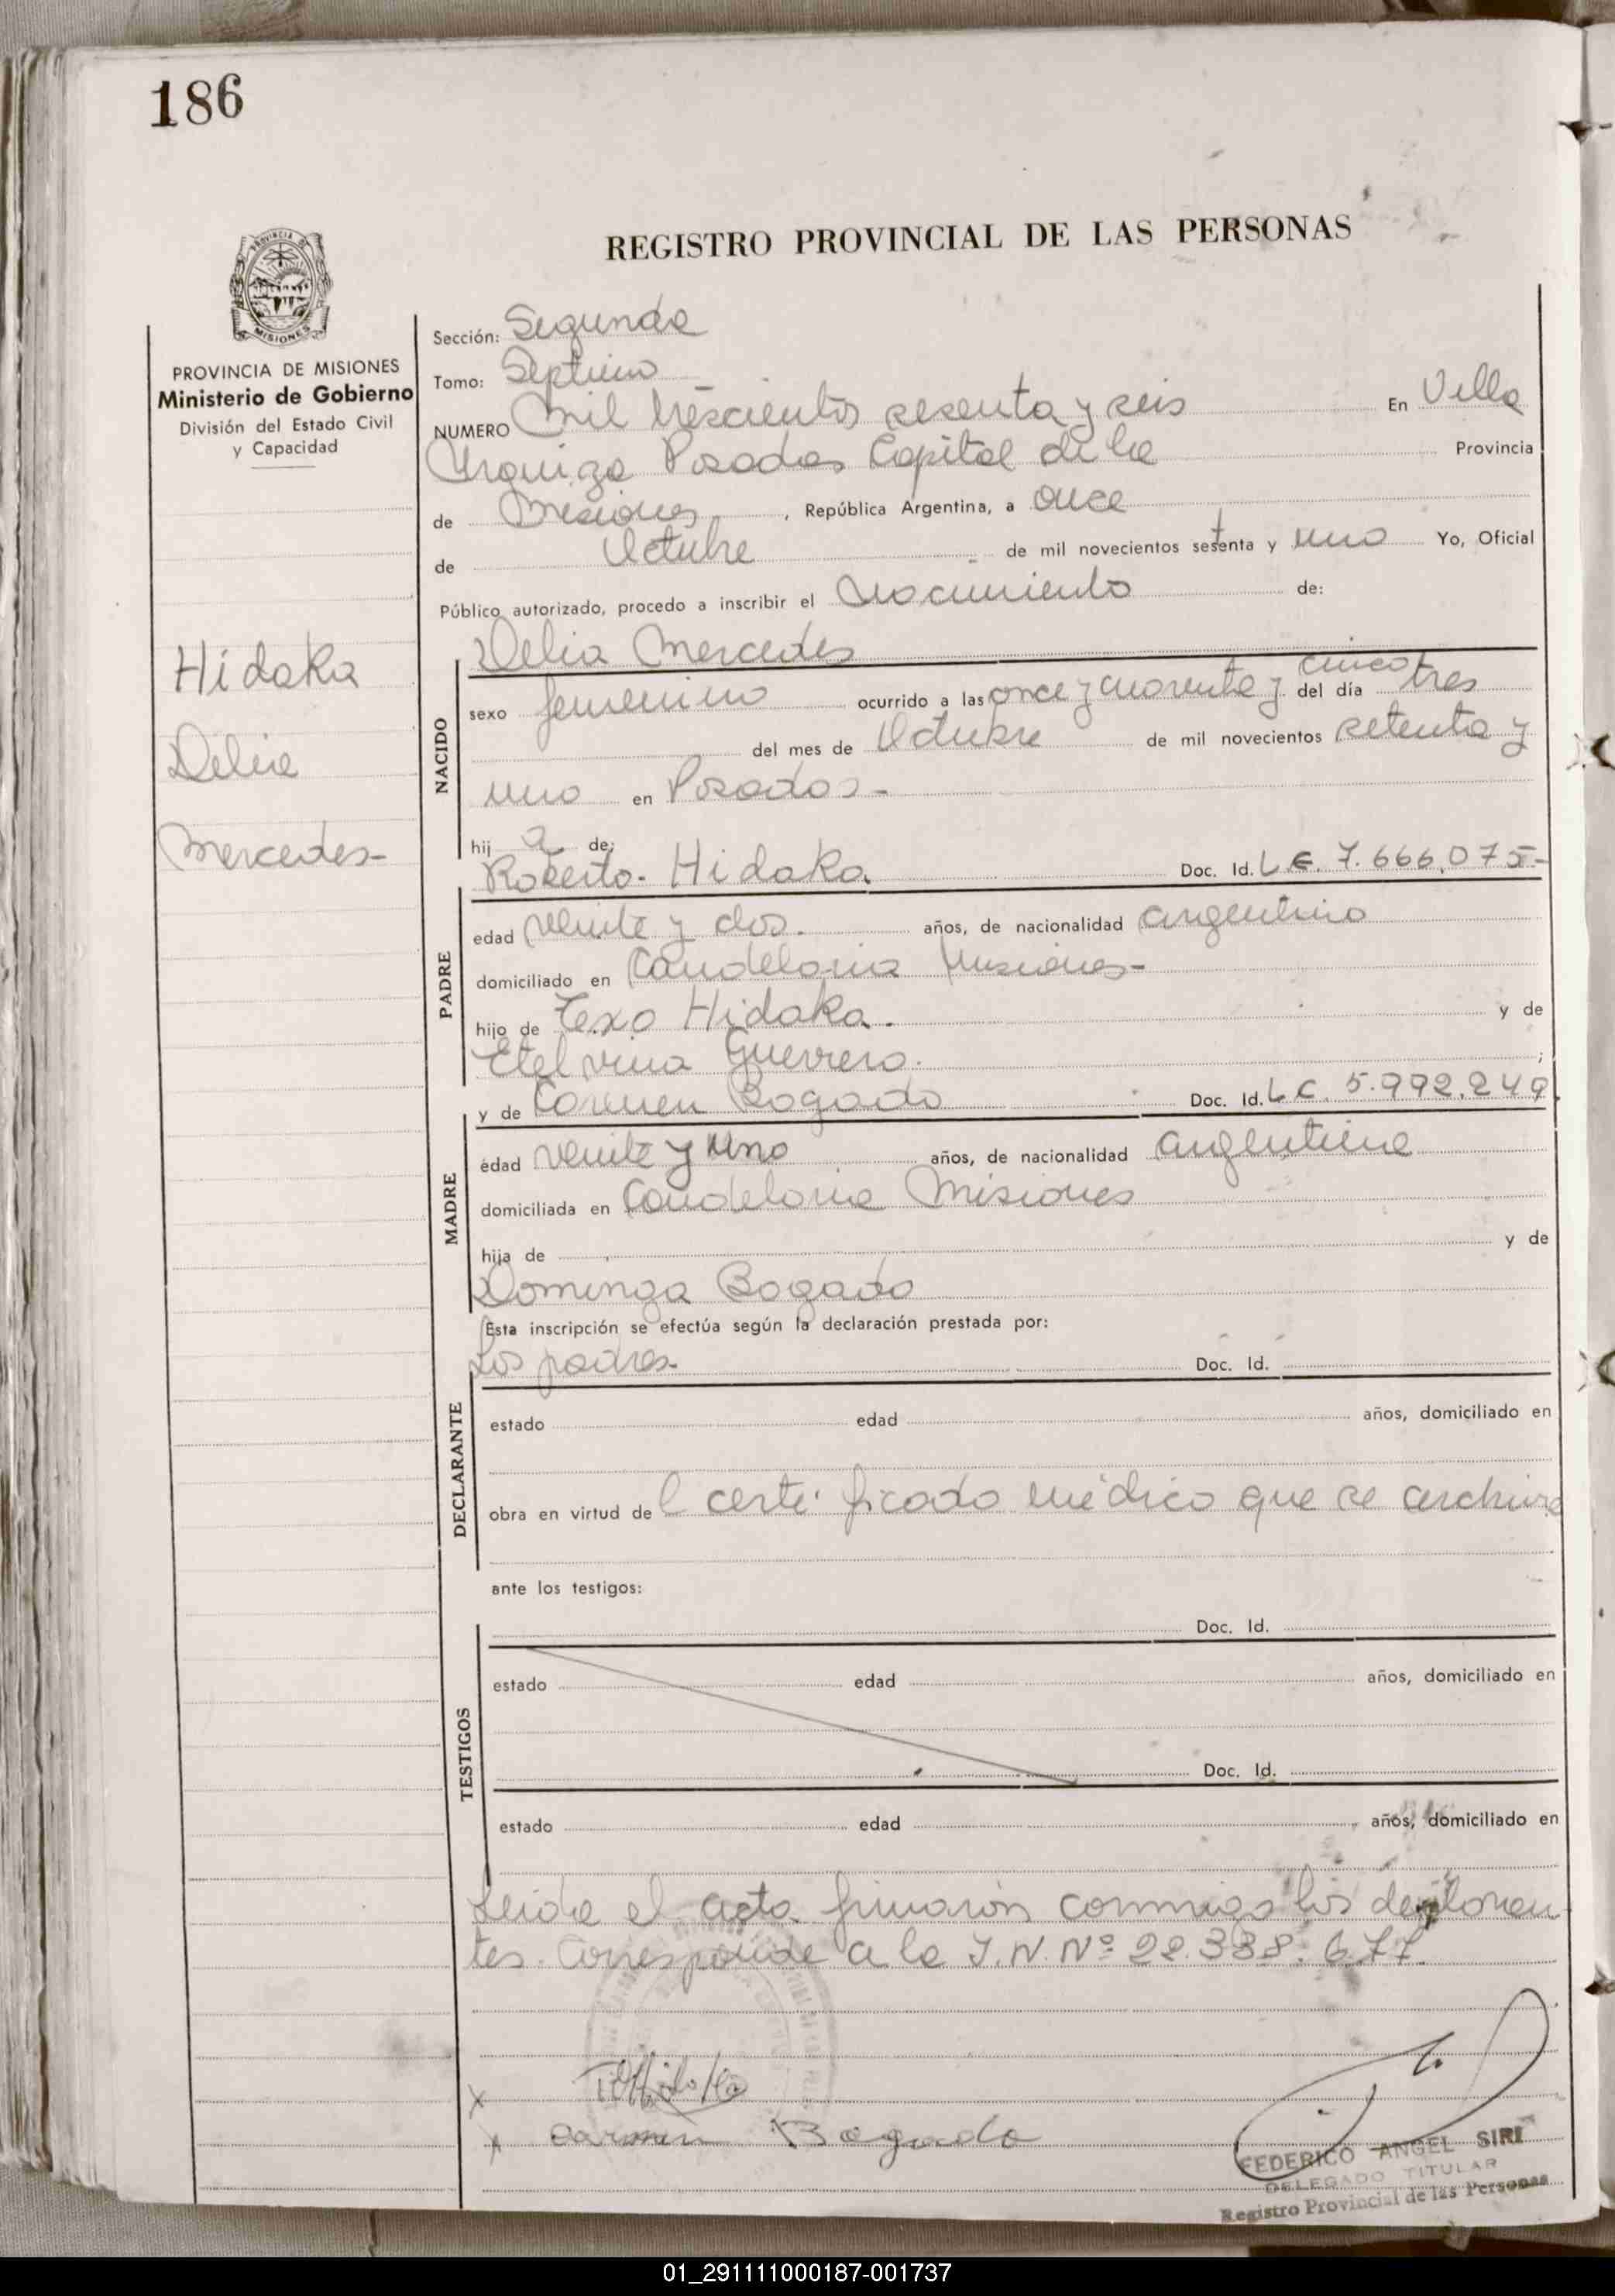 186
REGISTRO PROVINCIAL DE LAS PERSONAS
PROVINCIA DE
MISIONES
PROVINCIA DE MISIONES
Ministerio de Gobierno
División del Estado Civil
y Capacidad
Hidaka
Delia
Mercedes-
Sección: Segunda
Tomo: Septimo
NUMERO Mil trescientos sesenta y seis En Villa
Urquiza Posadas Capital de la Provincia
de Misiones, República Argentina, a once
de Octubre de mil novecientos setenta y uno Yo, Oficial
Público autorizado, procedo a inscribir el Nacimiento de:
Delia Mercedes
NACIDO
sexo femenino ocurrido a las once y cuarenta y cinco del día tres
del mes de Octubre de mil novecientos setenta y
uno en Posadas-
hij a de:
Roberto. Hidaka. Doc. Id. L.E. 7.666,075-
PADRE
edad veinte y dos. años, de nacionalidad argentino
domiciliado en Candelaria Misiones-
hijo de Texo Hidaka. y de
Etelvina Guerrero. ;
y de Carmen Bogado Doc. Id. L.C. 5.992.249.
MADRE
edad veinte y uno años, de nacionalidad argentina
domiciliada en Candelaria Misiones
hija de y de
Dominga Bogado
Esta inscripción se efectúa según la declaración prestada por:
Los padres- Doc. Id.
DECLARANTE
estado edad años, domiciliado en
obra en virtud de l certificado médico que se archiva
ante los testigos:
Doc. Id.
TESTIGOS
estado edad años, domiciliado en
Doc. Id.
estado edad años, domiciliado en
Leida el acta firmarón conmigo los declaran
tes. Corresponde a la I.N. Nº 22.388.677.
x
x Carmen Bogado
FEDERICO ANGEL SIRI
DELEGADO TITULAR
Registro Provincial de las Personas
01_291111000187-001737